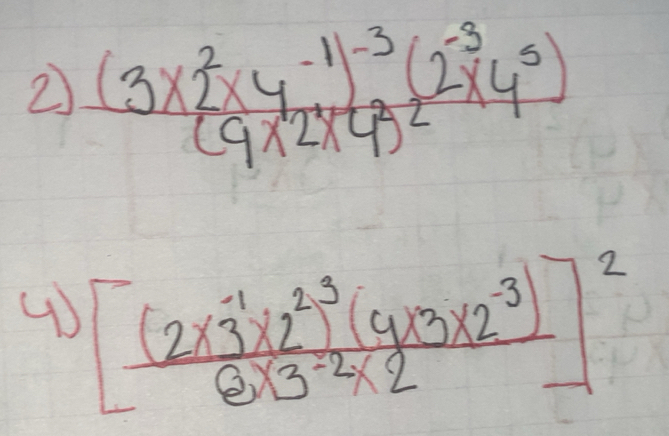 2) (3×2²×4⁻¹)⁻³ (2⁻³×4⁵)
(9×2¹×4²)²
4) [ (2×3⁻¹×2²)³ (9×3×2⁻³) ]²
8×3⁻²×2